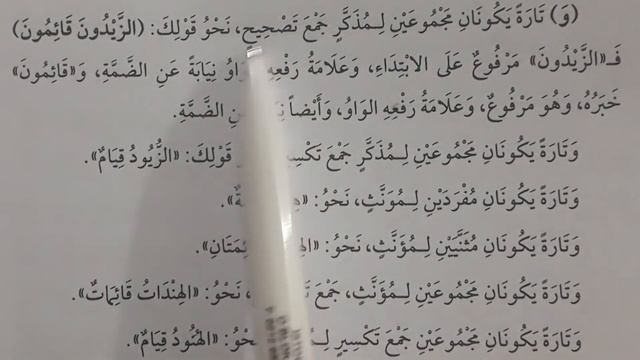 (وَ) تَارَةً يَكُونَانِ مَجْمُوعَيْنِ لِـمُذَكَّرٍ جَمْعَ تَصْحِيحٍ، نَحْوُ قَوْلِكَ: (الزَّيْدُونَ قَائِمُونَ)
فَـ«الزَّيْدُونَ» مَرْفُوعٌ عَلَى الابْتِدَاءِ، وَعَلَامَةُ رَفْعِهِ نِيَابَةً عَنِ الضَّمَّةِ، وَ«قَائِمُونَ»
خَبَرُهُ، وَهُوَ مَرْفُوعٌ، وَعَلَامَةُ رَفْعِهِ الوَاوُ، وَأَيْضاً الضَّمَّةِ.
وَتَارَةً يَكُونَانِ مَجْمُوعَيْنِ لِـمُذَكَّرٍ جَمْعَ قَوْلِكَ: «الزُّيُودُ قِيَامٌ».
وَتَارَةً يَكُونَانِ مُفْرَدَيْنِ لِـمُؤَنَّثٍ، نَحْوُ:
وَتَارَةً يَكُونَانِ مُثَنَّيَيْنِ لِـمُؤَنَّثٍ، نَحْوُ:
وَتَارَةً يَكُونَانِ مَجْمُوعَيْنِ لِـمُؤَنَّثٍ، جَمْعَ نَحْوُ: «الهِنْدَاتُ قَائِمَاتٌ».
وَتَارَةً يَكُونَانِ مَجْمُوعَيْنِ جَمْعَ تَكْسِيرٍ نَحْوُ: «الهُنُودُ قِيَامٌ».